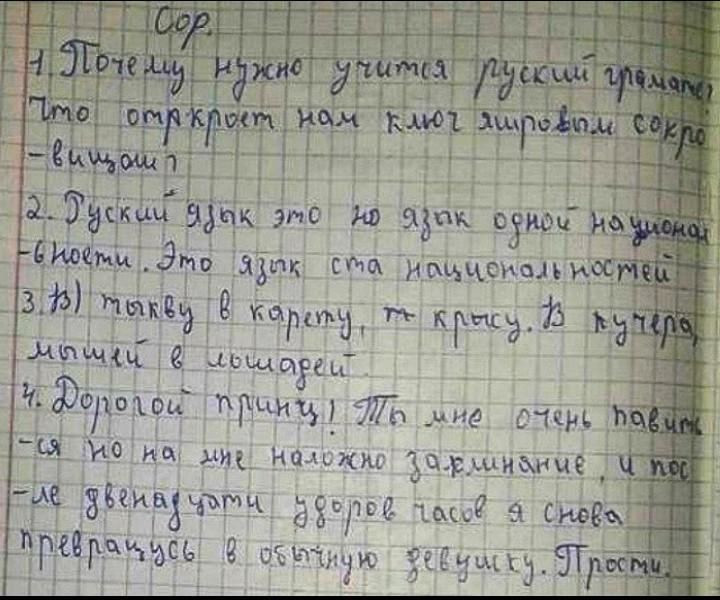 Сор.
1. Почему нужно учится руский грамате?
Что откроет нам ключ к мировым сокро
-вищам?
2. Руский язык это но язык одной национал
-ьности. Это язык ста национальностей
3. В) тыкву в карету, крысу. В кучера,
мышей в лошадей.
4. Дорогой принц! Ты мне очень навить
-ся но на мне наложно заклинание, и пос
-ле двенадцати ударов часов я снова
превращусь в обычную девушку. Прости.